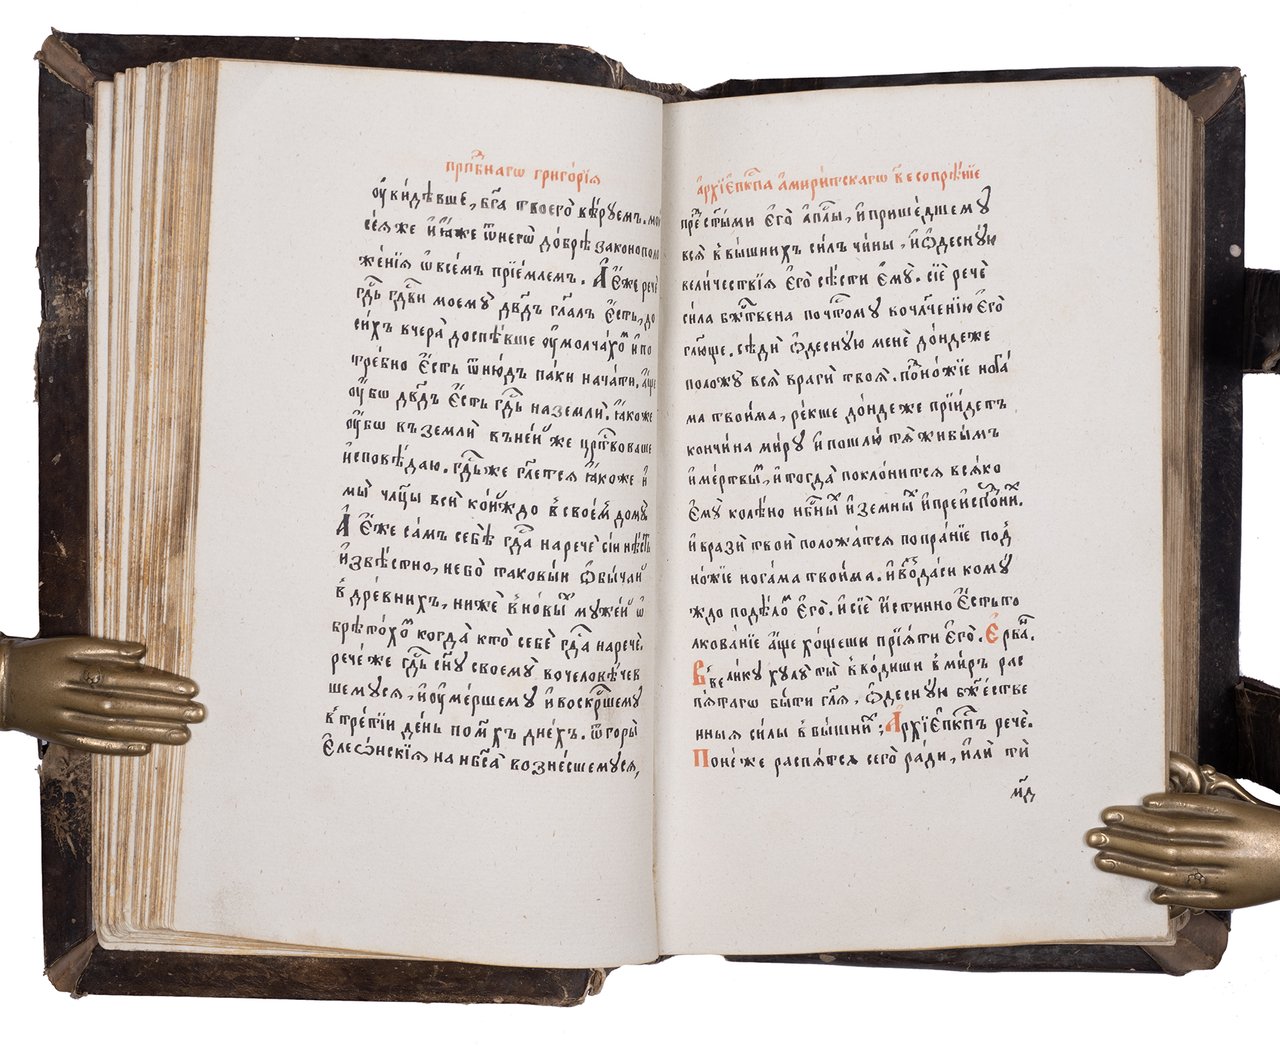 прпⷣбнагѡ григо́рїѧ
ѹ҆ви́дѣвше, бг҃а твоего̀ вѣ́руемъ. мои
сеѧ́ же и҆ ꙗ҆́же ѿ негѡ̀ до́брѣ законополо
же́нїѧ ѡ҆ всѣ́мъ прїе́млемъ. А҆ є҆́же речѐ
гдⷭ҇ь гдⷭ҇ви моемꙋ̀ дв҃дъ гл҃алъ є҆́сть, до
си́хъ вчера̀ доспѣ́вше ѹ҆молча́хоⷨ и҆ по
тре́бно є҆́сть ѿню́дъ па́ки нача́ти. а҆́ще
ѹ҆́бѡ дв҃дъ є҆́сть гдⷭ҇ь на землѝ. ꙗ҆́коже
ѹ҆́бѡ въ землѝ въ не́й же црⷭ҇твоваше
и҆сповѣ́даю. гдⷭ҇ь же гл҃ется ꙗ҆́коже и҆
мы̀ чл҃цы всѝ ко́йждо в̾ свое́мъ домꙋ̀
А҆ є҆́же са́мъ себѐ гдⷭ҇а наречѐ сїѝ нѣ́сть
и҆звѣ́стно, не бо̀ тако́выи ѡ҆бы́чай
в̾ дре́внихъ, ни́же в̾ но́выⷯ муже́й ѡ҆
брѣто́хоⷨ когда̀ кто̀ себѐ гдⷭ҇а наречѐ.
рече́ же гдⷭ҇ь сн҃у своемꙋ̀ вочеловѣ́чев
шемусѧ, и҆ ѹ҆ме́ршему и҆ воскрⷭ҇шему
в̾ тре́тїи де́нь по мⷩ҇ѣхъ днехъ. ѿ горы̀
є҆леѡ́нскїѧ на нб҃са̀ вознесшемуся,
а҆рхїепⷭ҇кпа а҆мири́тскагѡ в̾ є҆сопрѣ́нїе
пре́ⷣ ст҃ы́ми є҆го̀ а҆пⷭ҇лы, и҆ прише́дшему
всѧ̀ в̾ вы́шнихъ си́лъ чи́ны, и҆ ѡ҆десну́ю
вели́чествїѧ є҆го̀ сѣ́сти є҆мꙋ̀. сїѐ речѐ
си́ла бжⷭ҇твена почто́му вочл҃че́нїю є҆го̀
гл҃юще. сѣдѝ ѡ҆десну́ю менѐ до́ндеже
положу̀ всѧ̀ врагѝ твоѧ̀. поⷣно́жїе нога́
ма твои́ма, ре́кше до́ндеже прїи́детъ
кончи́на ми́ру и҆ пошлю̀ тѧ̀ живы́мъ
и҆ ме́ртвыⷨ, и҆ тогда̀ покло́нитсѧ всѧ́ко
є҆мꙋ̀ колѣ́но нбⷭ҇ныⷯ и҆ земны́ⷯ и҆ преиспо́дниⷯ.
и҆ вразѝ твоѝ положа́тсѧ попра́нїе по́ⷣ
но́жїе нога́ма твои́ма. и҆ возда́си кому́
ждо по дѣ́лоⷨ є҆го̀. и҆ сїѐ и҆́стинно є҆́сть то
лкова́нїе а҆́ще хо́щеши прїѧ́ти є҆го̀. Є҆рва́н.
В̾ вели́ку хулу̀ ты̀ в̾во́диши в̾ ми́ръ рас
пѧ́таго бы́ти гл҃ѧ, ѡ҆десну́ю бжⷭ҇естве
нныѧ си́лы в̾ вы́шниⷯ; А҆рхїепⷭ҇кпъ речѐ.
Поне́же распѧ́тсѧ сего̀ ра́ди, и҆́ли ты̀
мд҃